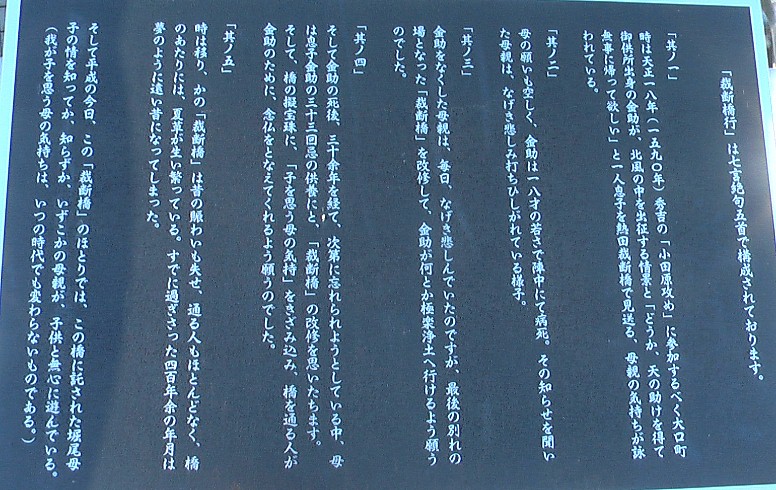 「裁断橋行」は七言絶句五首で構成されております。
「其ノ一」
時は天正一八年（一五九〇年）秀吉の「小田原攻め」に参加するべく大口町
御供所出身の金助が、北風の中を出征する情景と「どうか、天の助けを得て
無事に帰って欲しい」と一人息子を熱田裁断橋で見送る、母親の気持ちが詠
われている。
「其ノ二」
母の願いも空しく、金助は一八才の若さで陣中にて病死。その知らせを聞い
た母親は、なげき悲しみ打ちひしがれている様子。
「其ノ三」
金助をなくした母親は、毎日、なげき悲しんでいたのですが、最後の別れの
場となった「裁断橋」を改修して、金助が何とか極楽浄土へ行けるよう願う
のでした。
「其ノ四」
そして金助の死後、三十余年を経て、次第に忘れられようとしている中、母
は息子金助の三十三回忌の供養にと、「裁断橋」の改修を思いたちます。
そして、橋の擬宝珠に、「子を思う母の気持」をきざみ込み、橋を通る人が
金助のために、念仏をとなえてくれるよう願うのでした。
「其ノ五」
時は移り、かの「裁断橋」は昔の賑わいも失せ、通る人もほとんどなく、橋
のあたりには、夏草が生い繁っている。すでに過ぎさった四百年余の年月は
夢のように遠い昔になってしまった。
そして平成の今日、この「裁断橋」のほとりでは、この橋に託された堀尾母
子の情を知ってか、知らずか、いずこかの母親が、子供と無心に遊んでいる。
（我が子を思う母の気持ちは、いつの時代でも変わらないものである。）